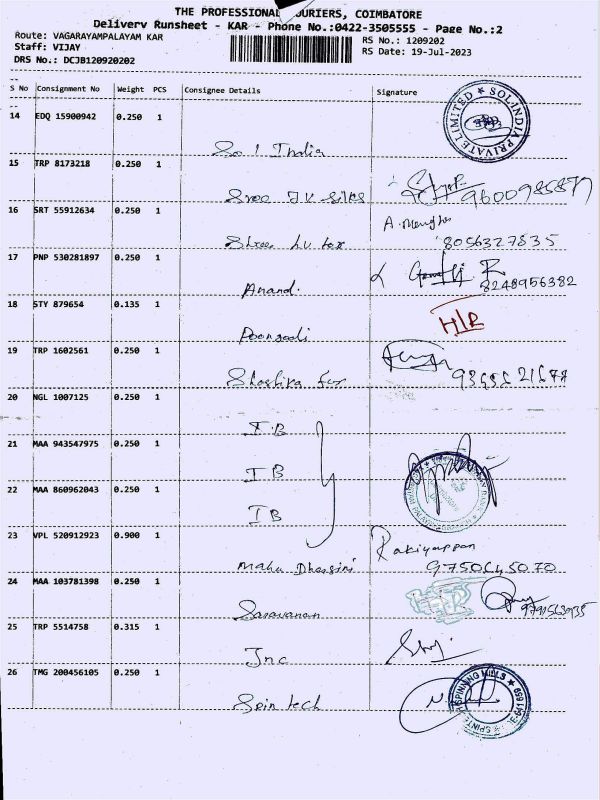 THE PROFESSIONAL COURIERS, COIMBATORE
Delivery Runsheet - KAR - Phone No.:0422-3505555 - Page No.:2
Route: VAGARAYAMPALAYAM KAR
RS No.: 1209202
Staff: VIJAY
RS Date: 19-Jul-2023
DRS No.: DCJB120920202
S No Consignment No Weight PCS Consignee Details Signature
14 EDQ 15900942 0.250 1
Sol India
SOLINDIA PRIVATE LIMITED
15 TRP 8173218 0.250 1
Sree J V Silks 9600985879
16 SRT 55912634 0.250 1
Shree LV tex 8056327835
17 PNP 530281897 0.250 1
Anand. 8248956382
18 STY 879654 0.135 1
Poongodi H/R
19 TRP 1602561 0.250 1
20 NGL 1007125 0.250 1
I.B
21 MAA 943547975 0.250 1
IB
22 MAA 860962043 0.250 1
IB
23 VPL 520912923 0.900 1
Rakiyappan
Mahu Dharsini 9750645070
24 MAA 103781398 0.250 1
Saravanan
25 TRP 5514758 0.315 1
Jnc
26 TMG 200456105 0.250 1
Spin tech
SPINNING MILLS